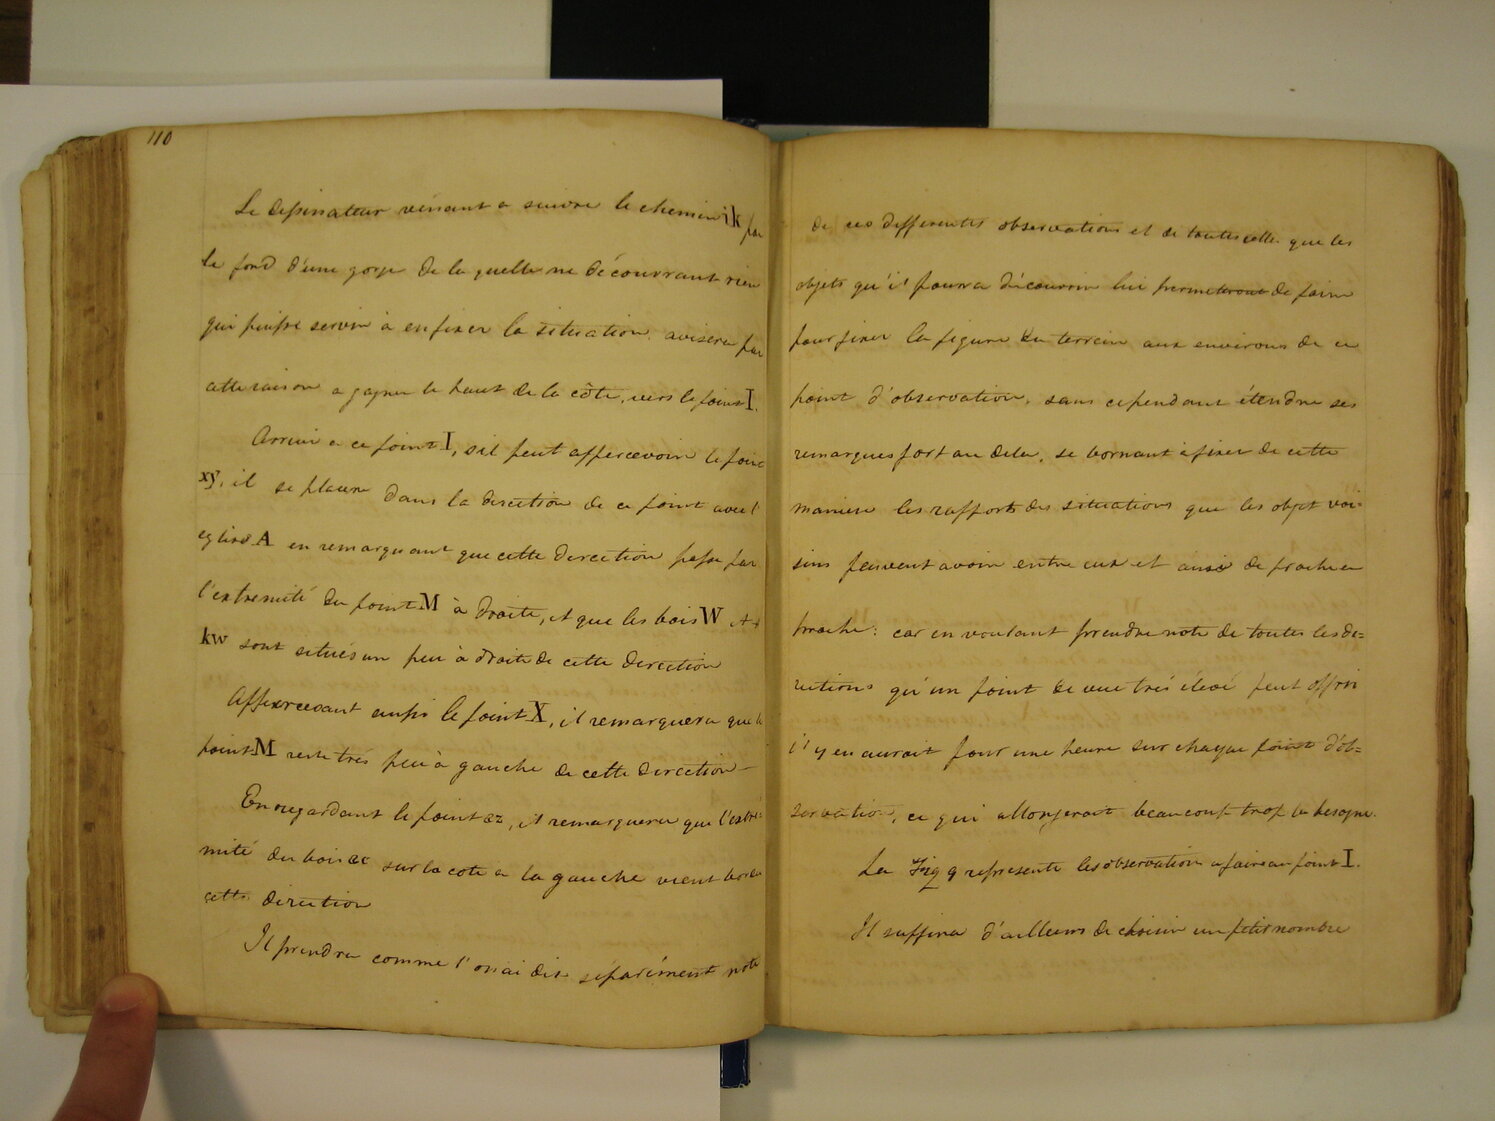 110
Le dessinateur venant a suivre le chemin ik par
le fond d'une gorge de la quelle ne découvrant rien
qui puisse servir à en fixer la situation, avisera par
cette raison a gagner le haut de la côte, vers le point I.
Arrivé a ce point I, s'il peut appercevoir le point
xy, il se placera dans la direction de ce point avec l'
eglise A en remarquant que cette direction passe par
l'extremité du point M à droite, et que les bois W et
kw sont situés un peu à droite de cette direction
Appercevant aussi le point X, il remarquera que le
point M reste trés peu à gauche de cette direction —
En regardant le point az, il remarquera que l'extré-
mité du bois ac sur la cote a la gauche vient border
cette direction
Il prendra comme l'on ai dit séparément note
de ces differentes observations et de toutes celles que les
objets qu'il pourra découvrir lui permettront de faire
pour fixer la figure du terrein aux environs de ce
point d'observation, sans cependant étendre ses
remarques fort au dela, se bornant à fixer de cette
maniere les rapports des situations que les objet voi=
sins peuvent avoir entre eux et ainsi de proche en
proche: car en voulant prendre note de toutes les di=
rections qu'un point de vue trés élevé peut offrir
il y en auroit pour une heure sur chaque point d'ob=
servation, ce qui allongerait beaucoup trop la besogne.
La Fig 9 represente les observation a faire au point I.
Il suffira d'ailleurs de choisir un petit nombre